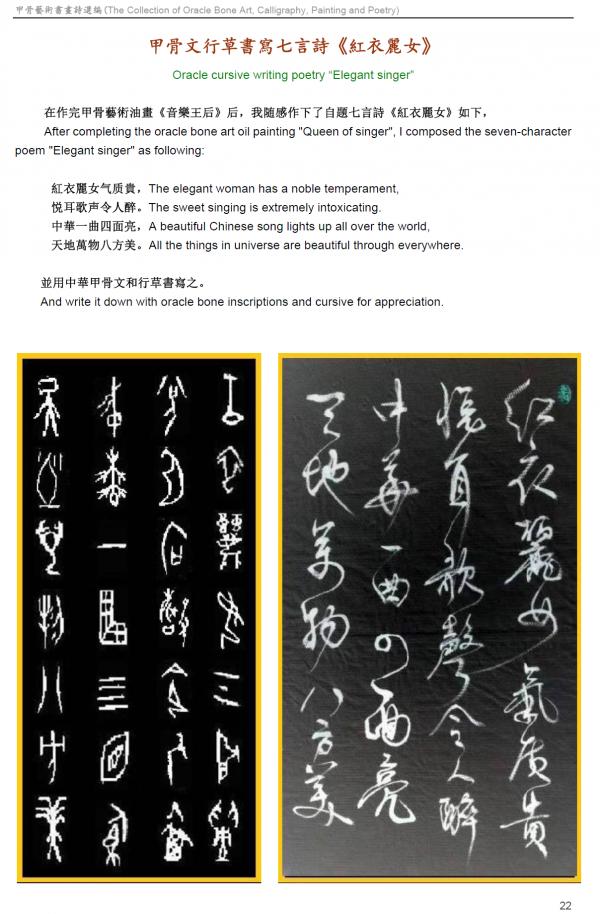 甲骨藝術書畫詩選編(The Collection of Oracle Bone Art, Calligraphy, Painting and Poetry)
甲骨文行草書寫七言詩《紅衣麗女》
Oracle cursive writing poetry “Elegant singer”
在作完甲骨藝術油畫《音樂王后》后，我随感作下了自题七言詩《紅衣麗女》如下，
After completing the oracle bone art oil painting "Queen of singer", I composed the seven-character
poem "Elegant singer" as following:
紅衣麗女气质貴，The elegant woman has a noble temperament,
悦耳歌声令人醉。The sweet singing is extremely intoxicating.
中華一曲四面亮，A beautiful Chinese song lights up all over the world,
天地萬物八方美。All the things in universe are beautiful through everywhere.
並用中華甲骨文和行草書寫之。
And write it down with oracle bone inscriptions and cursive for appreciation.
红衣麗女氣质贵
悦耳歌聲令人醉
中華一曲四面亮
天地萬物八方美
22